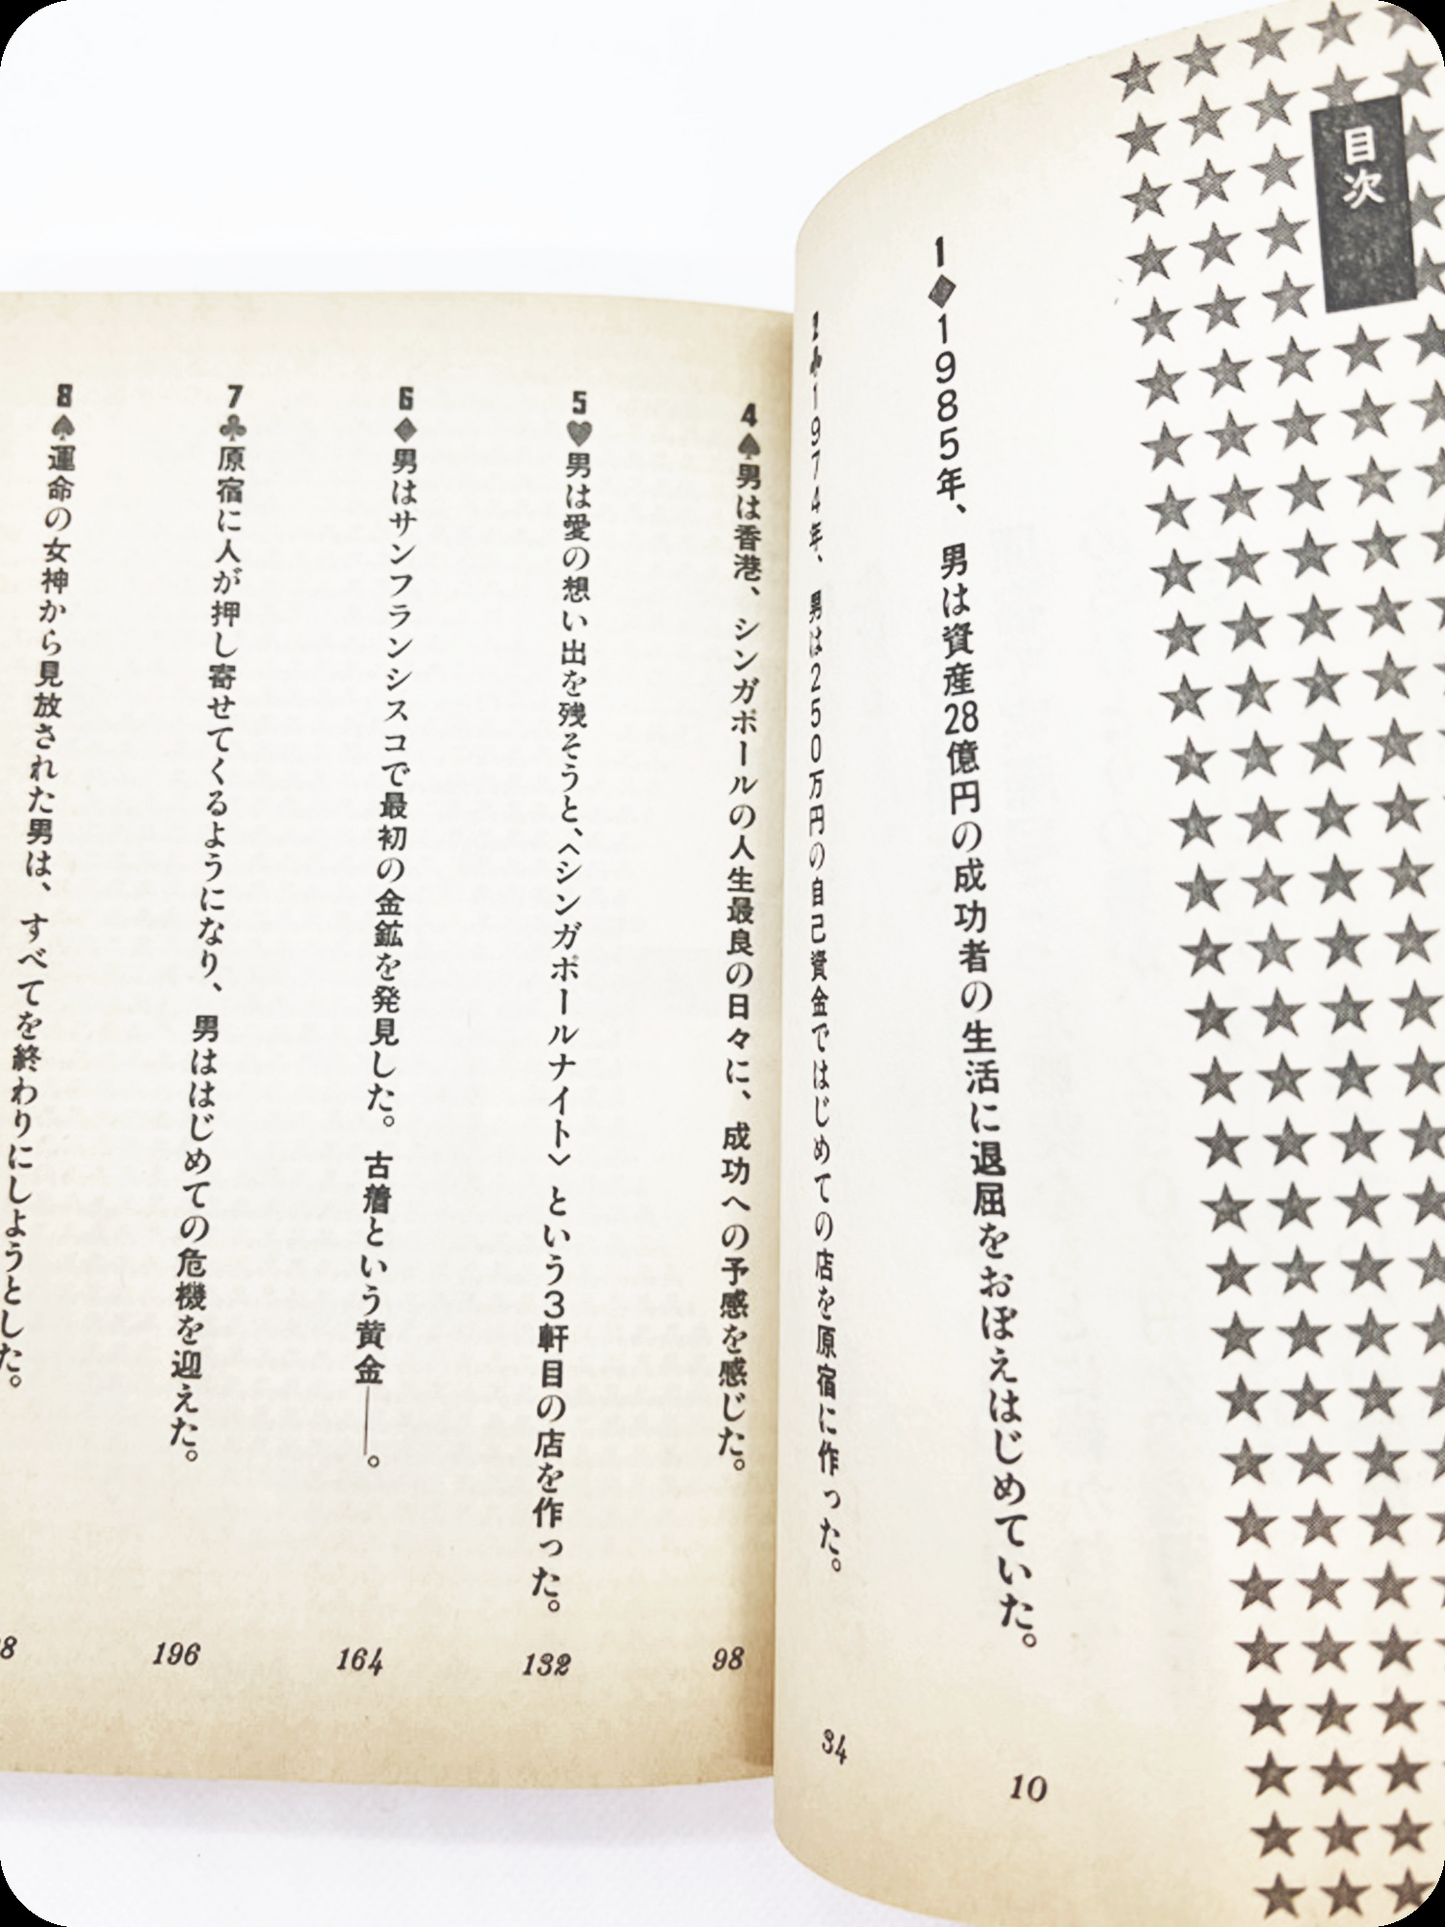 目次
1◆1985年、男は資産28億円の成功者の生活に退屈をおぼえはじめていた。
10
2♣1974年、男は250万円の自己資金ではじめての店を原宿に作った。
34
4♠男は香港、シンガポールの人生最良の日々に、成功への予感を感じた。
98
5♥男は愛の想い出を残そうと、〈シンガポールナイト〉という3軒目の店を作った。
132
6◆男はサンフランシスコで最初の金鉱を発見した。古着という黄金──。
164
7♣原宿に人が押し寄せてくるようになり、男ははじめての危機を迎えた。
196
8♠運命の女神から見放された男は、すべてを終わりにしようとした。